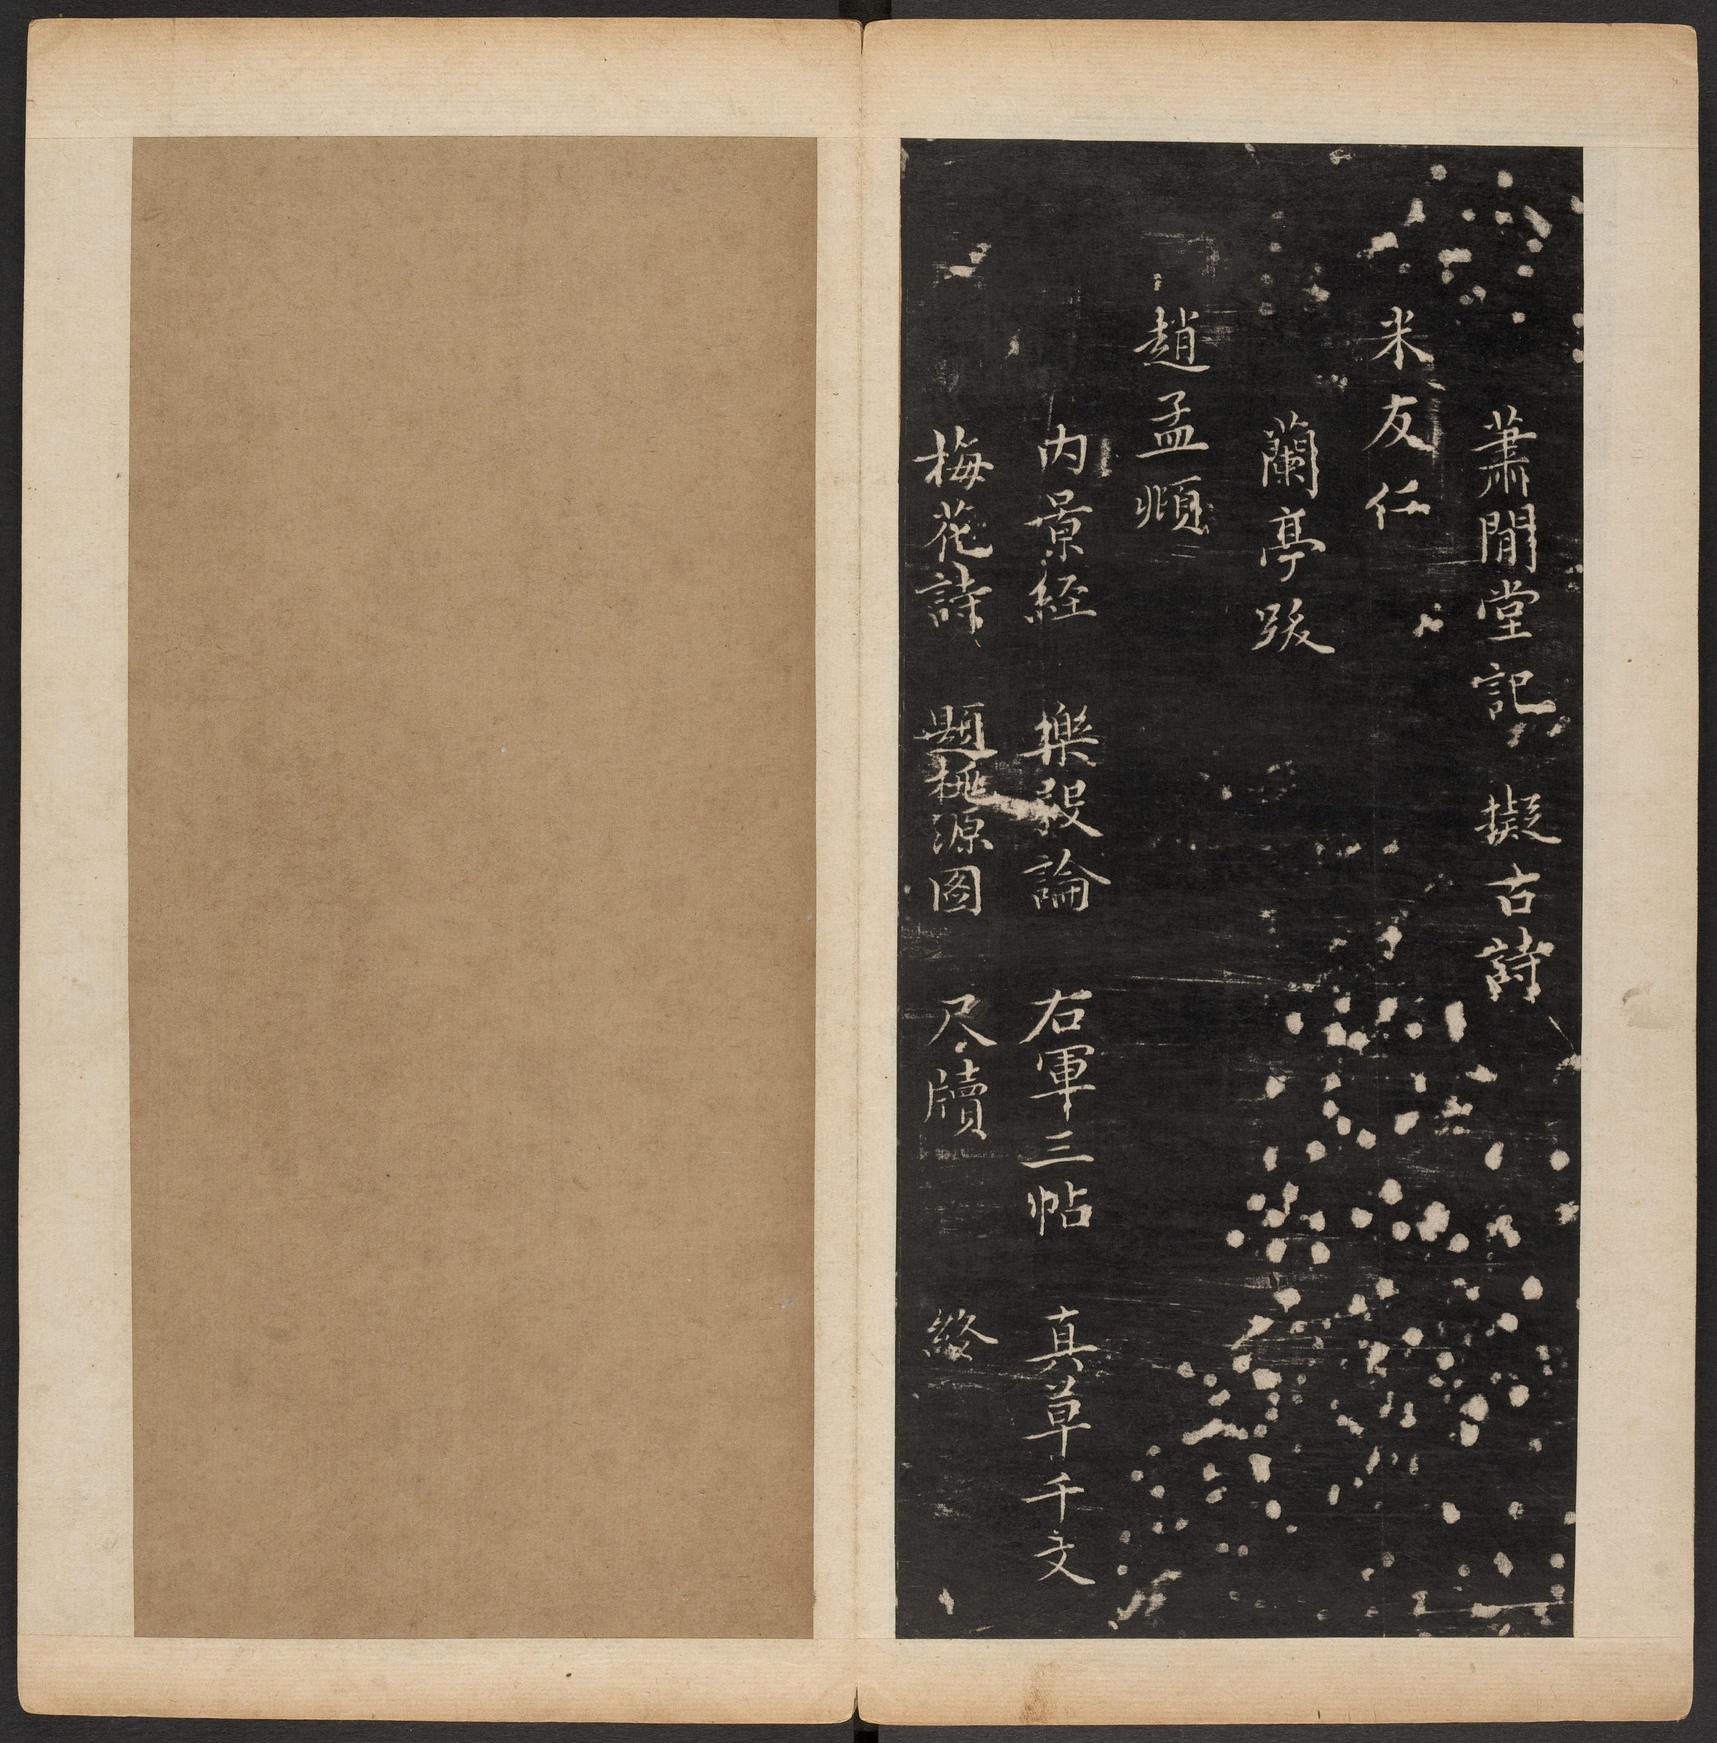 蕭閒堂記 擬古詩
米友仁
蘭亭跋
趙孟頫
内景経 樂毅論 右軍三帖 真草千文
梅花詩 題桃源图 尺牘 終